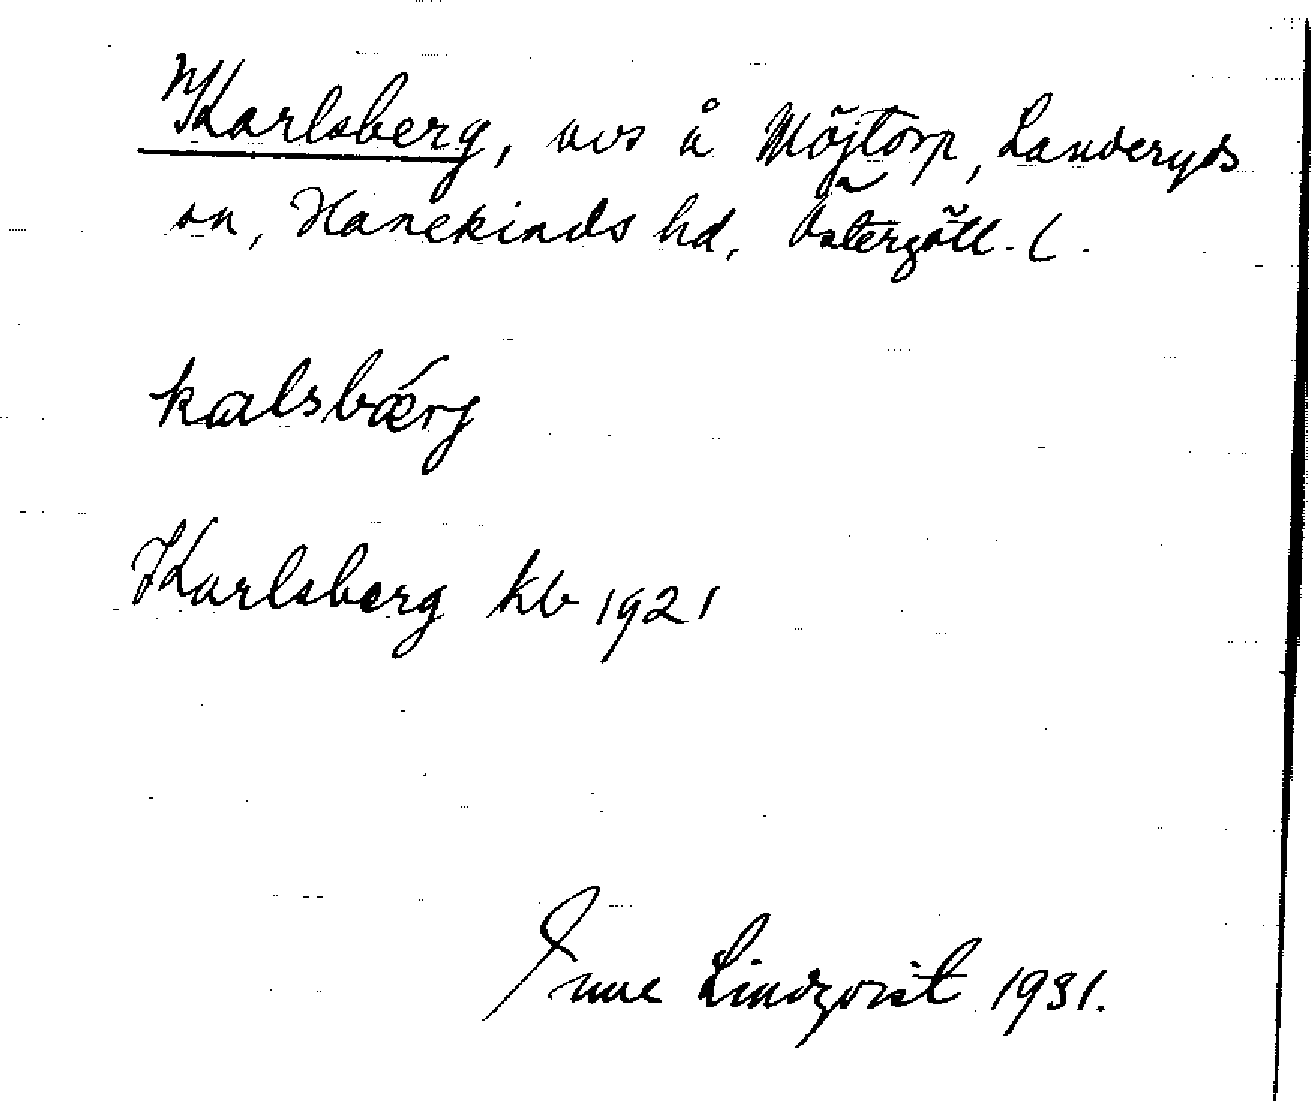 Karlsberg, avs å Möjtorp, Landeryds
sn, Hanekinds hd, Östergötl. l.
kalsbǽrj
Karlsberg kb 1921
Sune Lindqvist 1931.